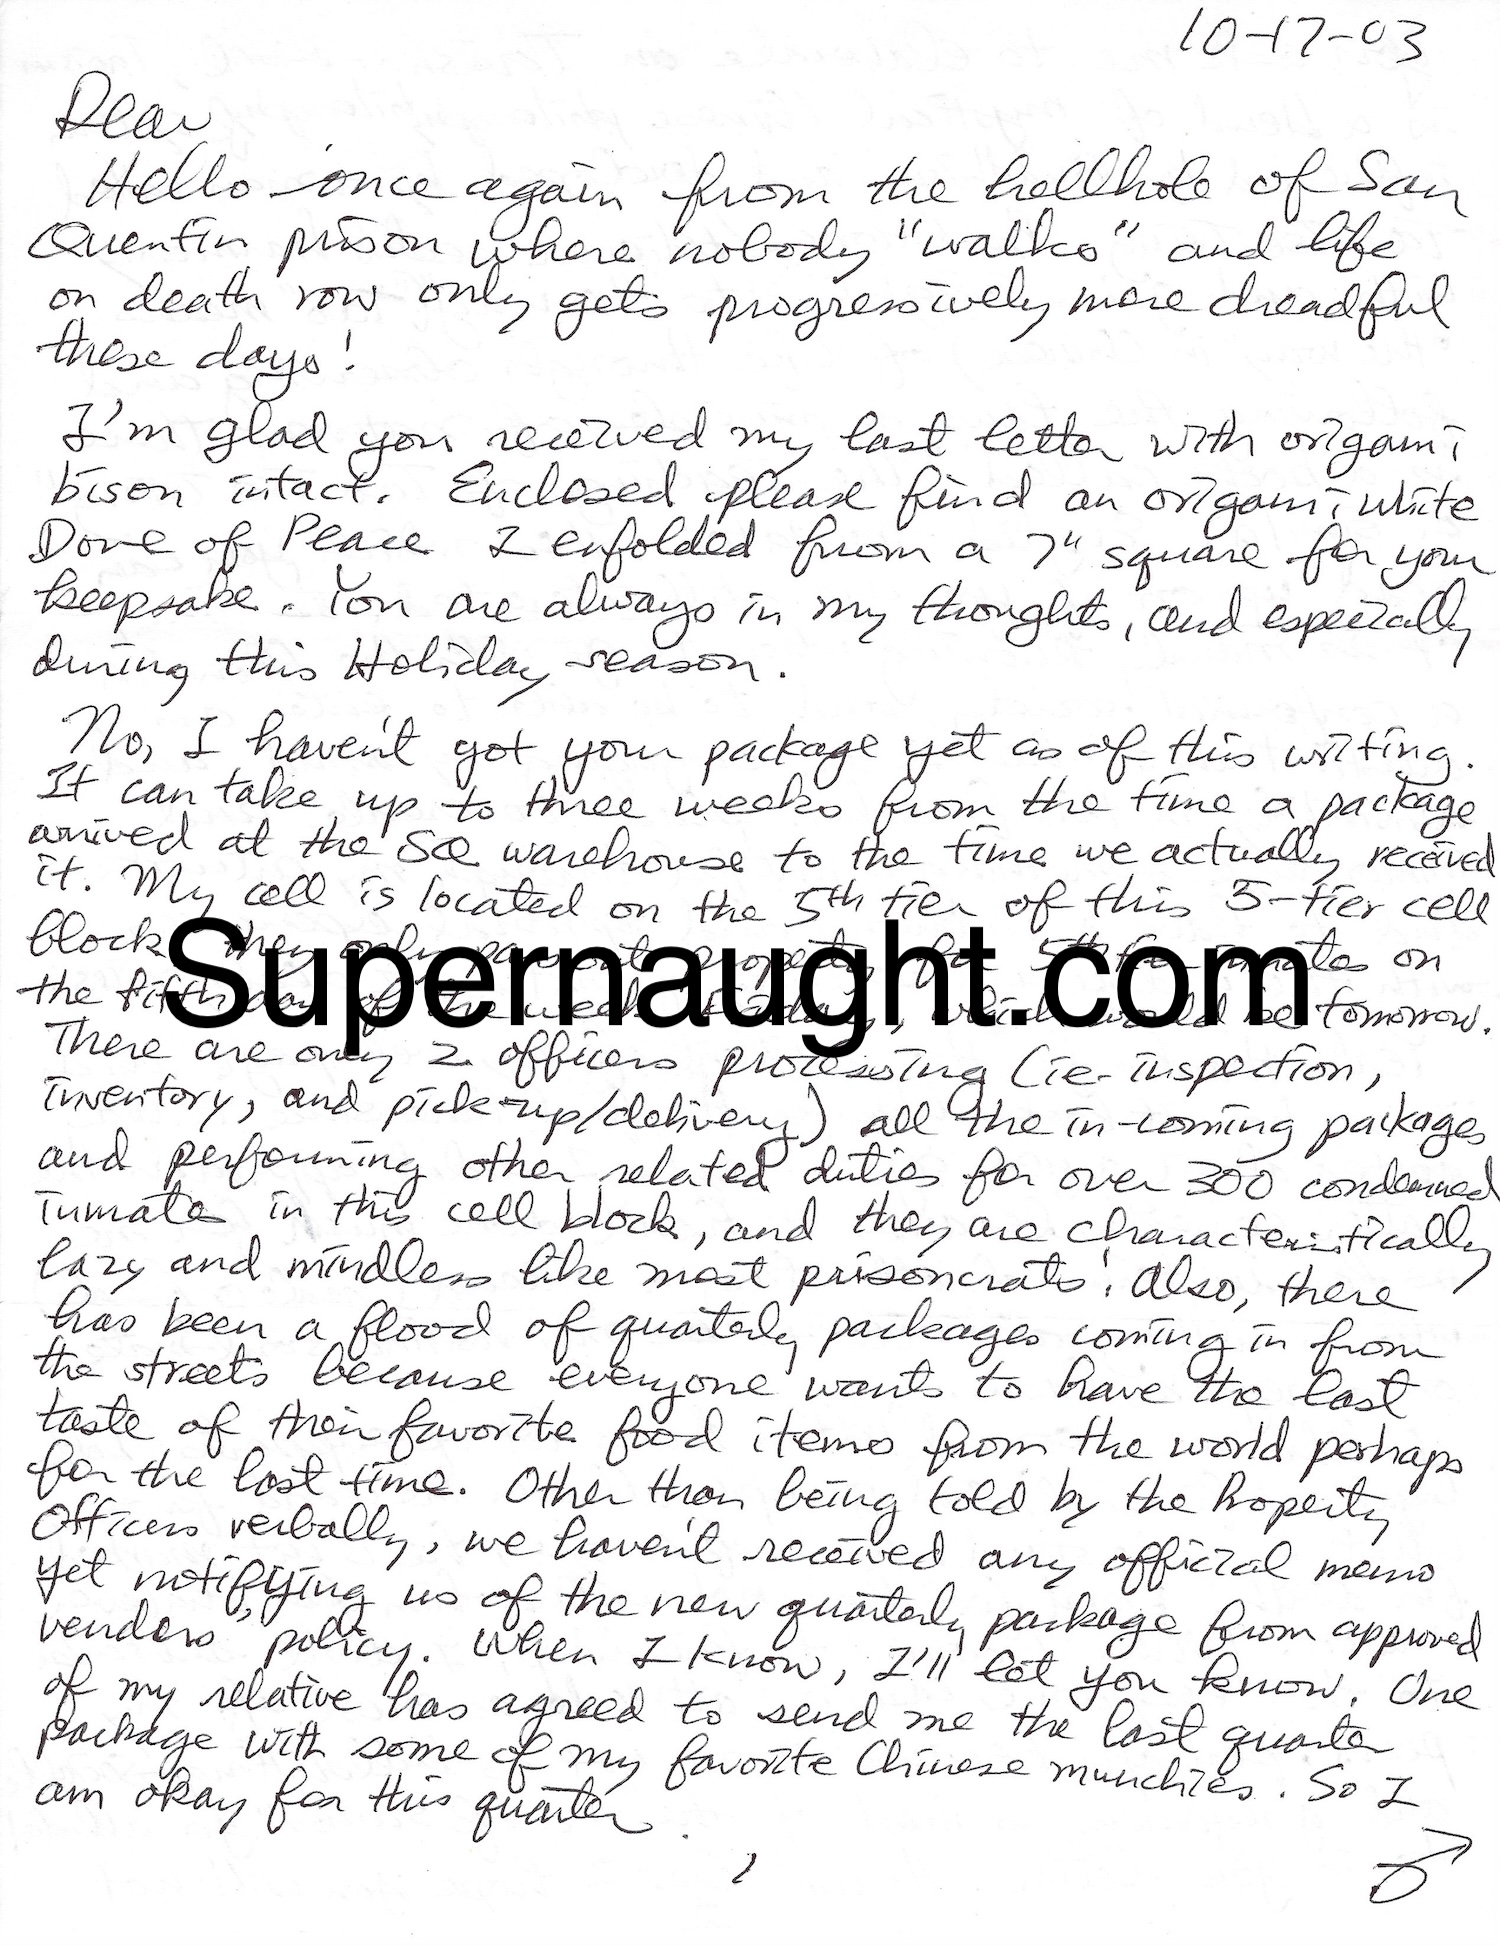 10-17-03
Dear
Hello once again from the hellhole of San
Quentin prison where nobody "walks" and life
on death row only gets progressively more dreadful
these days!
I'm glad you received my last letter with origami
bison intact. Enclosed please find an origami white
Dove of Peace I enfolded from a 7" square for your
keepsake. You are always in my thoughts, and especially
during this Holiday season.
No, I haven't got your package yet as of this writing.
It can take up to three weeks from the time a package
arrived at the SQ warehouse to the time we actually received
it. My cell is located on the 5th tier of this 5-tier cell
block. they only pass out property for 5th tier inmates on
the fifth day of the week, Friday, which would be tomorrow.
Supernaught.com
There are only 2 officers processing (ie. inspection,
inventory, and pick-up/delivery) all the in-coming packages
and performing other related duties for over 300 condemned
inmates in this cell block, and they are characteristically
lazy and mindless like most prisoncrats! Also, there
has been a flood of quarterly packages coming in from
the streets because everyone wants to have the last
taste of their favorite food items from the world perhaps
for the last time. Other than being told by the Property
Officers verbally, we haven't received any official memo
yet notifying us of the new quarterly package from approved
vendors' policy. When I know, I'll let you know. One
of my relative has agreed to send me the last quarter
package with some of my favorite Chinese munchies. So I
am okay for this quarter.
1